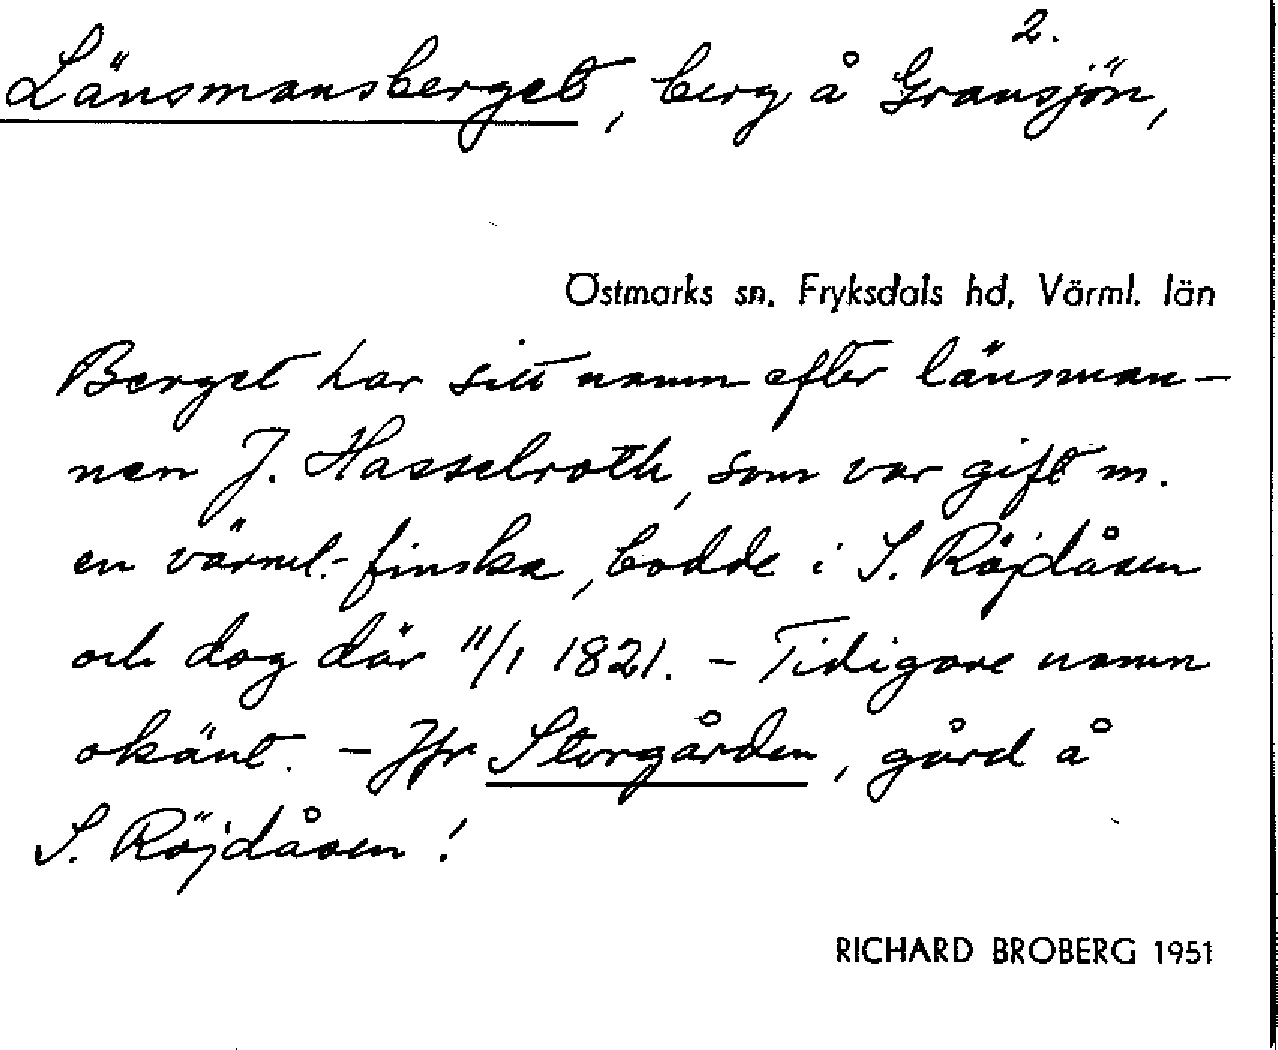 2.
Länsmansberget, berg å Gransjön,
Östmarks sn. Fryksdals hd, Värml. län
Berget har sitt namn efter länsman-
nen J. Hasselroth, som var gift m.
en värml.-finska, bodde i S. Röjdåsen
och dog där 11/1 1821. – Tidigare namn
okänt. – Jfr Storgården, gård å
S. Röjdåsen!
RICHARD BROBERG 1951